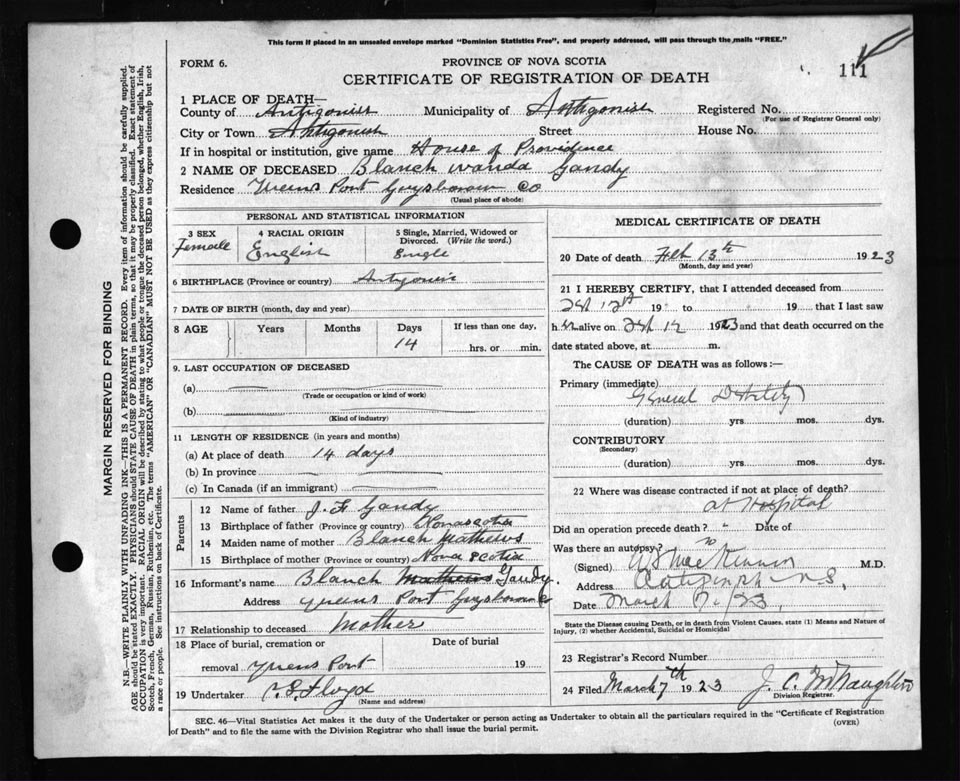 This form if placed in an unsealed envelope marked "Dominion Statistics Free", and properly addressed, will pass through the mails "FREE."
FORM 6.
PROVINCE OF NOVA SCOTIA
CERTIFICATE OF REGISTRATION OF DEATH
111
1 PLACE OF DEATH—
County of Antigonish Municipality of Antigonish Registered No.
(For use of Registrar General only)
City or Town Antigonish Street House No.
If in hospital or institution, give name House of Providence
2 NAME OF DECEASED Blanch Wanda Gandy
Residence Queens Port Guysborour Co
(Usual place of abode)
PERSONAL AND STATISTICAL INFORMATION
3 SEX Female
4 RACIAL ORIGIN English
5 Single, Married, Widowed or Divorced. (Write the word.) Single
6 BIRTHPLACE (Province or country) Antigonis
7 DATE OF BIRTH (month, day and year)
8 AGE Years Months Days If less than one day,
14 hrs. or min.
9. LAST OCCUPATION OF DECEASED
(a)
(Trade or occupation or kind of work)
(b)
(Kind of industry)
11 LENGTH OF RESIDENCE (in years and months)
(a) At place of death 14 days
(b) In province
(c) In Canada (if an immigrant)
Parents
12 Name of father J. F. Gandy
13 Birthplace of father (Province or country) Novascotia
14 Maiden name of mother Blanch Mathews
15 Birthplace of mother (Province or country) Nova Scotia
16 Informant's name Blanch Mathews Gandy.
Address Queens Port Guysborour Co
17 Relationship to deceased Mother
18 Place of burial, cremation or Date of burial
removal Queens Port 19
19 Undertaker Floyd
(Name and address)
MEDICAL CERTIFICATE OF DEATH
20 Date of death Feb 13th 1923
(Month, day and year)
21 I HEREBY CERTIFY, that I attended deceased from
Feb 12th 19 to 19 that I last saw
h er alive on Feb 12 1923 and that death occurred on the
date stated above, at m.
The CAUSE OF DEATH was as follows:—
Primary (immediate)
General Debility
(duration) yrs mos. dys.
CONTRIBUTORY
(Secondary)
(duration) yrs. mos. dys.
22 Where was disease contracted if not at place of death?
at Hospital
Did an operation precede death? " Date of
Was there an autopsy? No
(Signed) MacKinnon M.D.
Address Antigonish N.S,
Date March 7./23,
State the Disease causing Death, or in death from Violent Causes, state (1) Means and Nature of
Injury, (2) whether Accidental, Suicidal or Homicidal
23 Registrar's Record Number
24 Filed March 7th 1923 J. C. McNaughton
Division Registrar.
SEC. 46—Vital Statistics Act makes it the duty of the Undertaker or person acting as Undertaker to obtain all the particulars required in the "Certificate of Registration
of Death" and to file the same with the Division Registrar who shall issue the burial permit.
(OVER)
MARGIN RESERVED FOR BINDING
N.B.—WRITE PLAINLY WITH UNFADING INK—THIS IS A PERMANENT RECORD. Every item of information should be carefully supplied.
AGE should be stated EXACTLY. PHYSICIANS should STATE CAUSE OF DEATH in plain terms, so that it may be properly classified. Exact statement of
OCCUPATION is very important. RACIAL ORIGIN will be described by stating to what people or tongue the deceased person belonged, whether English, Irish,
Scotch, French, German, Russian, Ruthenian, etc. The terms "AMERICAN" OR "CANADIAN" MUST NOT BE USED as they express citizenship but not
a race or people. See instructions on back of Certificate.